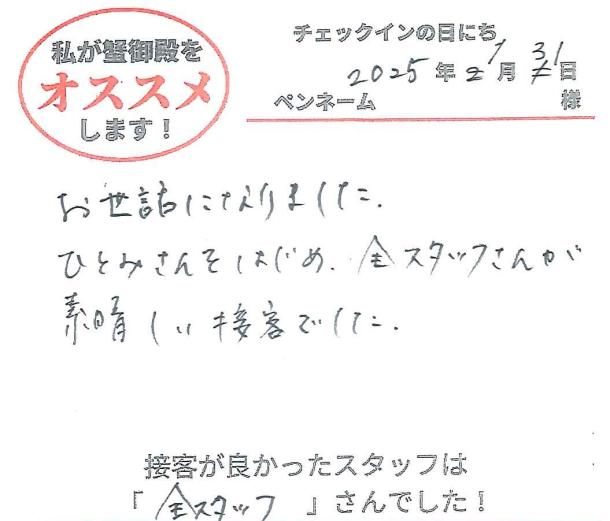 私が蟹御殿を
オススメ
します!
チェックインの日にち
2025年1月31日
ペンネーム 様
お世話になりました.
ひとみさんをはじめ、全スタッフさんが
素晴しい接客でした.
接客が良かったスタッフは
「全スタッフ」さんでした!